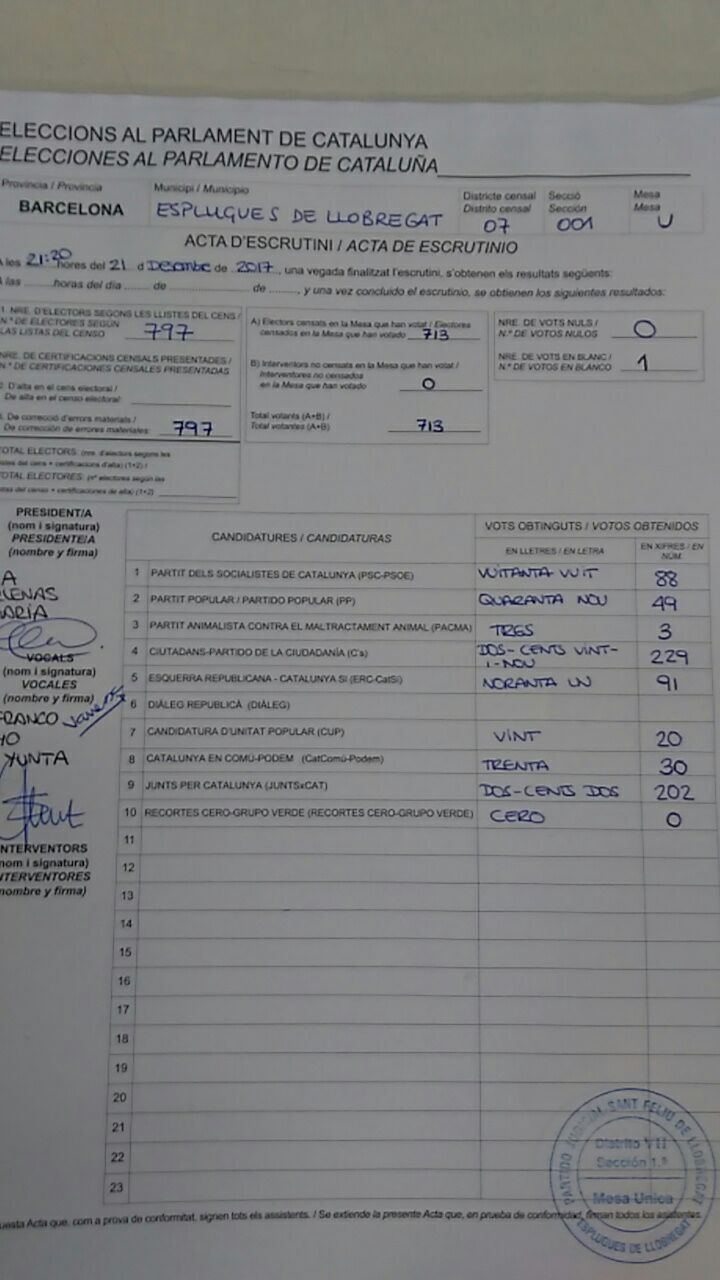 ELECCIONS AL PARLAMENT DE CATALUNYA
ELECCIONES AL PARLAMENTO DE CATALUÑA
Provincia / Provincia
BARCELONA
Municipi / Municipio
ESPLUGUES DE LLOBREGAT
Districte censal
Distrito censal
07
Secció
Sección
001
Mesa
Mesa
U
ACTA D'ESCRUTINI / ACTA DE ESCRUTINIO
A les 21:30 hores del 21 d Desembre de 2017, una vegada finalitzat l'escrutini, s'obtenen els resultats següents:
A las ........ horas del día ........ de ........ de ........, y una vez concluido el escrutinio, se obtienen los siguientes resultados:
1. NRE. D'ELECTORS SEGONS LES LLISTES DEL CENS /
N.º DE ELECTORES SEGÚN
LAS LISTAS DEL CENSO 797
NRE. DE CERTIFICACIONS CENSALS PRESENTADES /
N.º DE CERTIFICACIONES CENSALES PRESENTADAS
D'alta en el cens electoral /
De alta en el censo electoral:
De correcció d'errors materials /
De corrección de errores materiales: 797
TOTAL ELECTORS: (nre. d'electors segons les
llistes del cens + certificacions d'alta) (1+2) /
TOTAL ELECTORES: (nº electores según las
listas del censo + certificaciones de alta) (1+2)
A) Electors censats en la Mesa que han votat / Electores
censados en la Mesa que han votado 713
B) Interventors no censats en la Mesa que han votat /
Interventores no censados
en la Mesa que han votado 0
Total votants (A+B) /
Total votantes (A+B) 713
NRE. DE VOTS NULS /
N.º DE VOTOS NULOS 0
NRE. DE VOTS EN BLANC /
N.º DE VOTOS EN BLANCO 1
PRESIDENT/A
(nom i signatura)
PRESIDENTE/A
(nombre y firma)
VOCALS
(nom i signatura)
VOCALES
(nombre y firma)
FRANCO
YUNTA
INTERVENTORS
(nom i signatura)
INTERVENTORES
(nombre y firma)
CANDIDATURES / CANDIDATURAS
VOTS OBTINGUTS / VOTOS OBTENIDOS
EN LLETRES / EN LETRA
EN XIFRES / EN NÚM.
1 PARTIT DELS SOCIALISTES DE CATALUNYA (PSC-PSOE) VUITANTA VUIT 88
2 PARTIT POPULAR / PARTIDO POPULAR (PP) QUARANTA NOU 49
3 PARTIT ANIMALISTA CONTRA EL MALTRACTAMENT ANIMAL (PACMA) TRES 3
4 CIUTADANS-PARTIDO DE LA CIUDADANÍA (C's) DOS-CENTS VINT-
I-NOU 229
5 ESQUERRA REPUBLICANA - CATALUNYA SÍ (ERC-CatSí) NORANTA UN 91
6 DIÀLEG REPUBLICÀ (DIÀLEG)
7 CANDIDATURA D'UNITAT POPULAR (CUP) VINT 20
8 CATALUNYA EN COMÚ-PODEM (CatComú-Podem) TRENTA 30
9 JUNTS PER CATALUNYA (JUNTSxCAT) DOS-CENTS DOS 202
10 RECORTES CERO-GRUPO VERDE (RECORTES CERO-GRUPO VERDE) CERO 0
11
12
13
14
15
16
17
18
19
20
21
22
23
PARTIDO JUDICIAL SANT FELIU DE LLOBREGAT
Distrito VII
Sección 1.ª
Mesa Unica
ESPLUGUES DE LLOBREGAT
Acta que, com a prova de conformitat, signen tots els assistents. / Se extiende la presente Acta que, en prueba de conformidad, firman todos los asistentes.